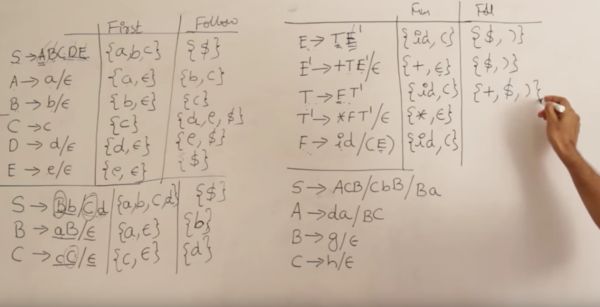 First Follow
S → ABCDE {a,b,c} {$}
A → a/ϵ {a,ϵ} {b,c}
B → b/ϵ {b,ϵ} {c}
C → c {c} {d,e,$}
D → d/ϵ {d,ϵ} {e,$}
E → e/ϵ {e,ϵ} {$}
S → Bb/Cd {a,b,c,d} {$}
B → aB/ϵ {a,ϵ} {b}
C → cC/ϵ {c,ϵ} {d}
E → TE' {id,(} {$,)}
E' → +TE'/ϵ {+,ϵ} {$,)}
T → FT' {id,(} {+,$,)}
T' → *FT'/ϵ {*,ϵ}
F → id/(E) {id,(}
S → ACB/CbB/Ba
A → da/BC
B → g/ϵ
C → h/ϵ